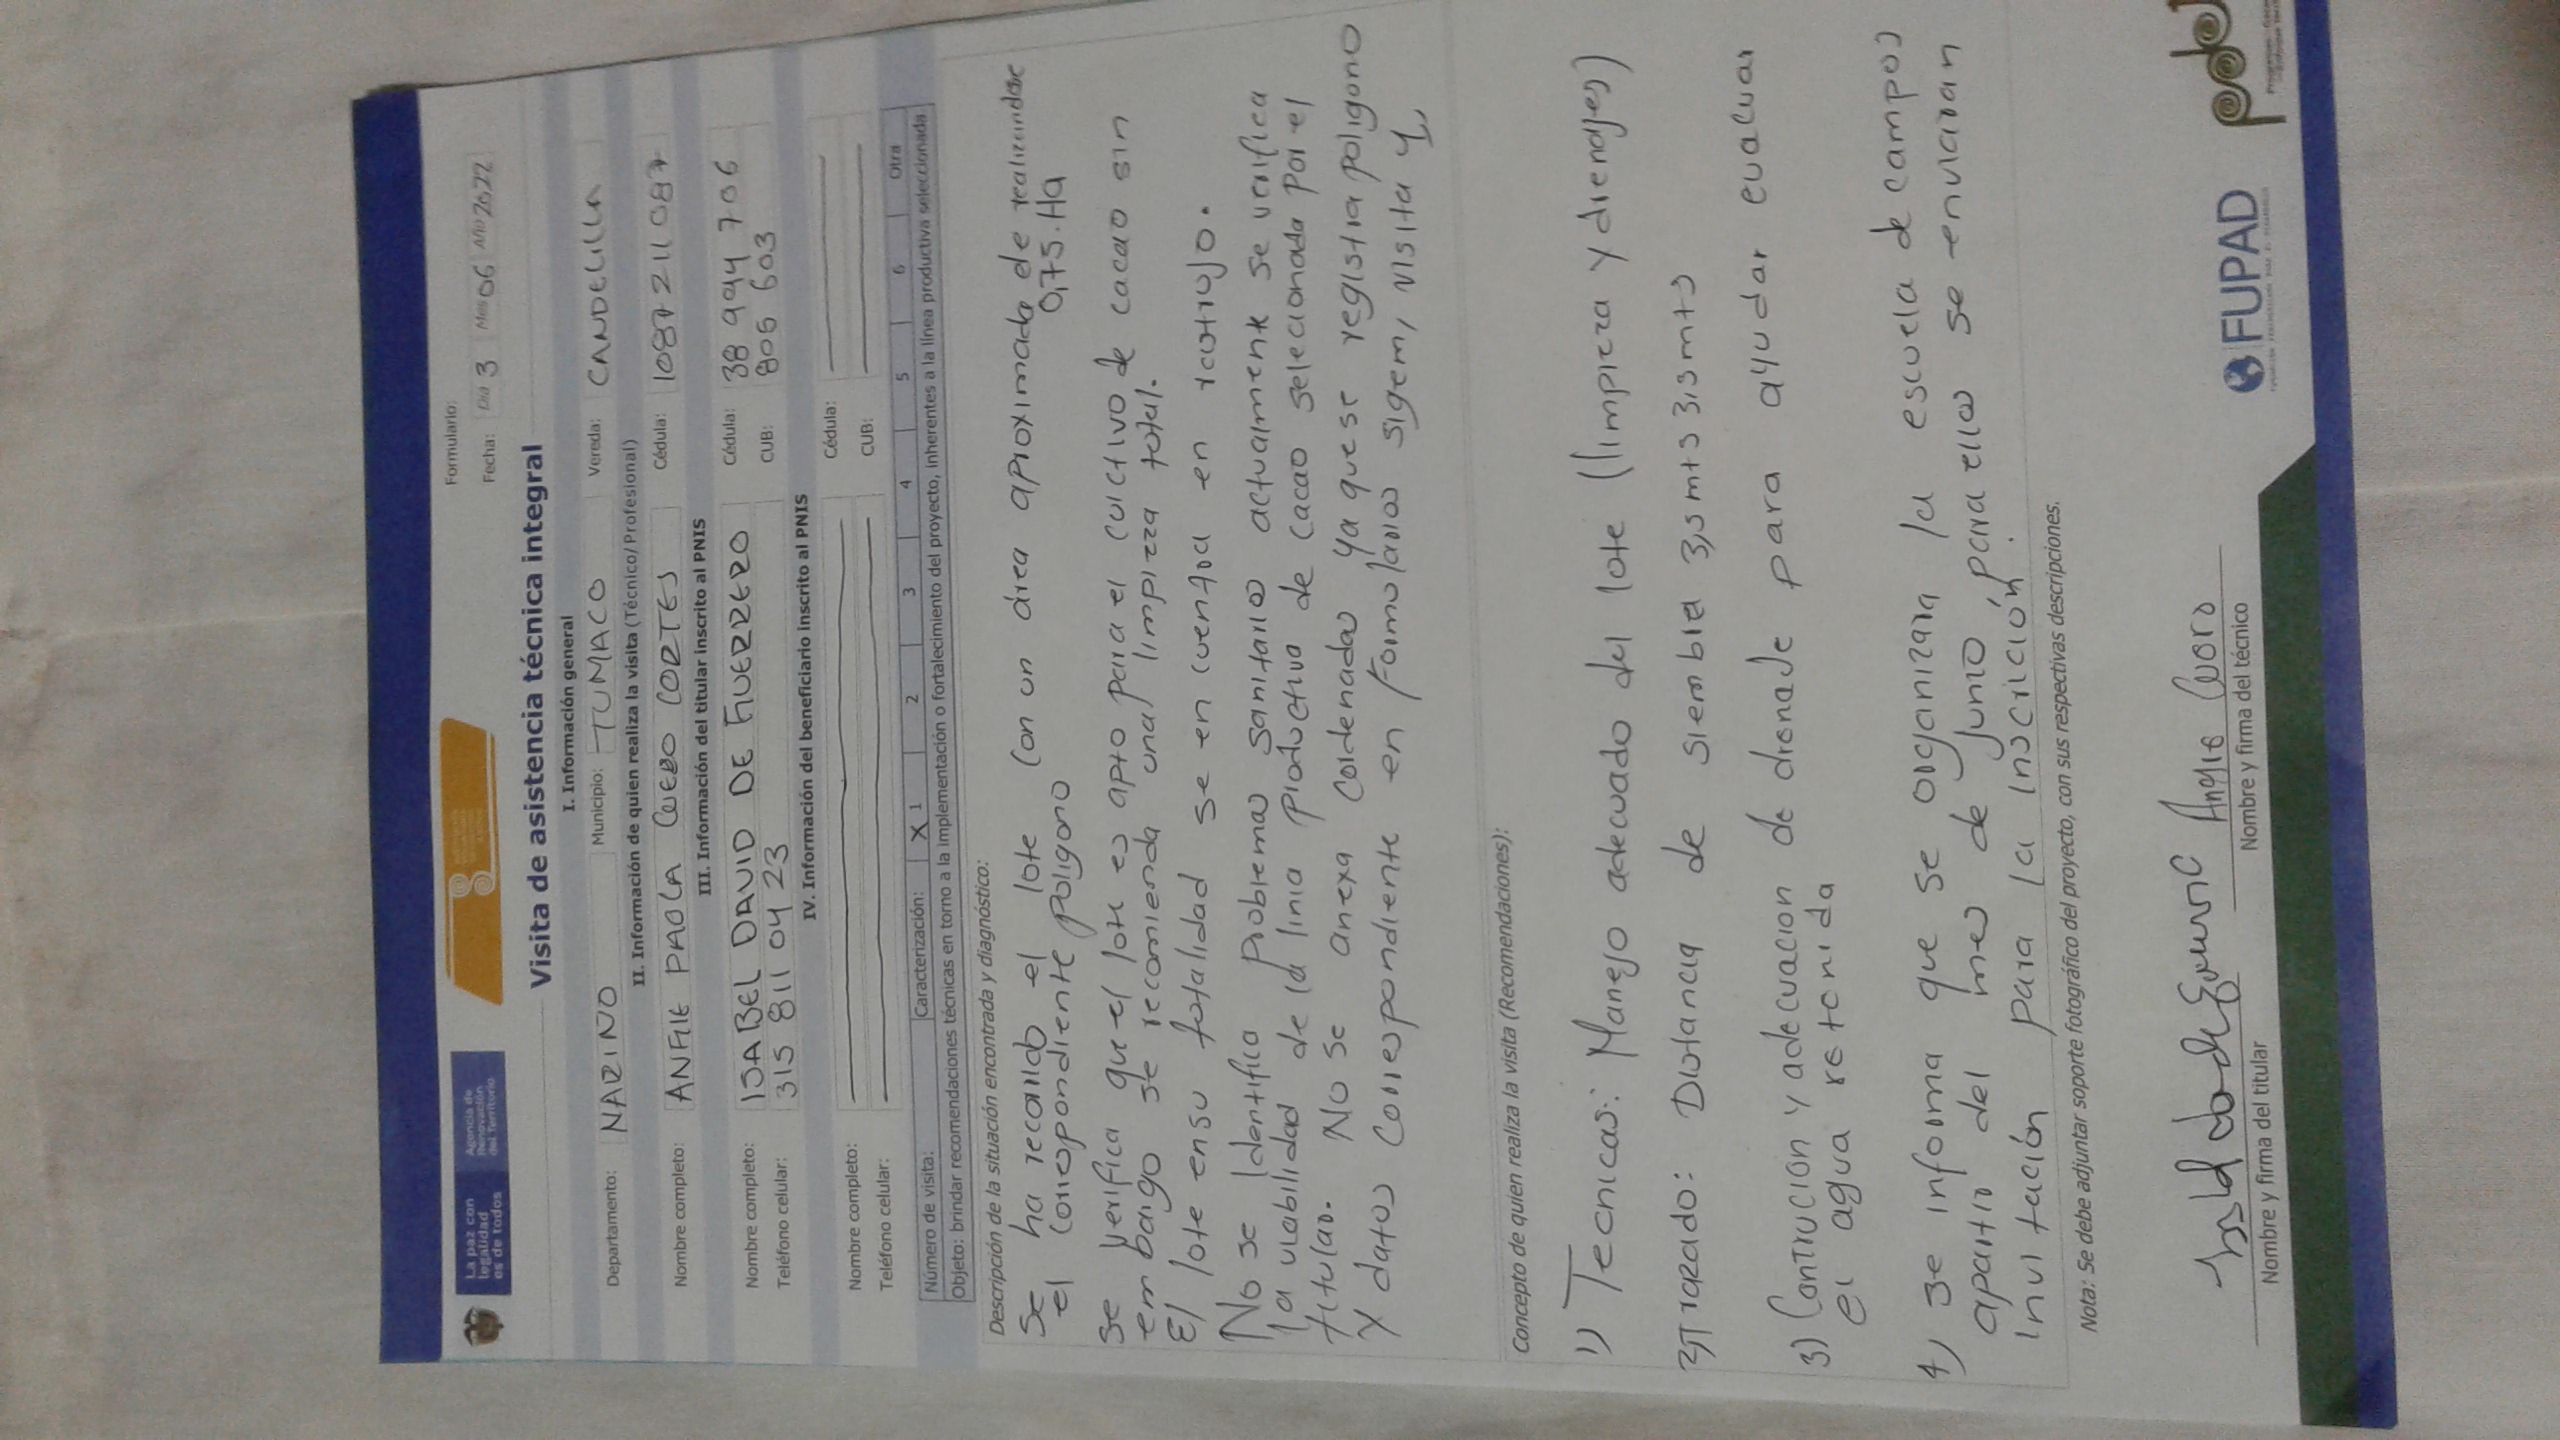 La paz con
legalidad
es de todos
Agencia de
Renovación
del Territorio
Formulario:
Fecha: Día 3 Mes 06 Año 2022
Visita de asistencia técnica integral
I. Información general
Departamento: NARIÑO Municipio: TUMACO Vereda: CANDELILLA
II. Información de quien realiza la visita (Técnico/Profesional)
Nombre completo: ANGIE PAOLA CUERO CORTES Cédula: 1087211087
III. Información del titular inscrito al PNIS
Nombre completo: ISABEL DAVID DE GUERRERO Cédula: 38 994 706
Teléfono celular: 315 811 04 23 CUB: 806 603
IV. Información del beneficiario inscrito al PNIS
Nombre completo: Cédula:
Teléfono celular: CUB:
Número de visita: Caracterización: X 1 2 3 4 5 6 Otra
Objeto: brindar recomendaciones técnicas en torno a la implementación o fortalecimiento del proyecto, inherentes a la línea productiva seleccionada
Descripción de la situación encontrada y diagnóstico:
Se ha recorrido el lote Con un área aproximada de realizandose
el correspondiente poligono 0,75. Ha
Se verifica que el lote es apto para el cultivo de cacao sin
embargo se recomienda una limpieza total.
El lote en su totalidad se en cuentra en rastrojo.
No se Identifico problemas sanitarios actualmente se verifica
la viabilidad de la linia productiva de cacao selecionada por el
titular. No se anexa Cordenadas ya que se registra poligono
y datos Correspondiente en Formolarios sigem, visita 1
Concepto de quien realiza la visita (Recomendaciones):
1) Tecnicas: Manejo adecuado del lote (limpieza y drenajes)
2) Trazado: Distancia de siembra 3,5 mts 3,5 mts
3) Contrucion y adecuacion de drenade para ayudar evacuar
el agua retenida
4) se informa que se organizara la escuela de campos
apartir del mes de junio para ellos se enviaran
invitación para la inscrición.
Nota: Se debe adjuntar soporte fotográfico del proyecto, con sus respectivas descripciones.
Angie Cuero
Nombre y firma del titular
Nombre y firma del técnico
FUPAD